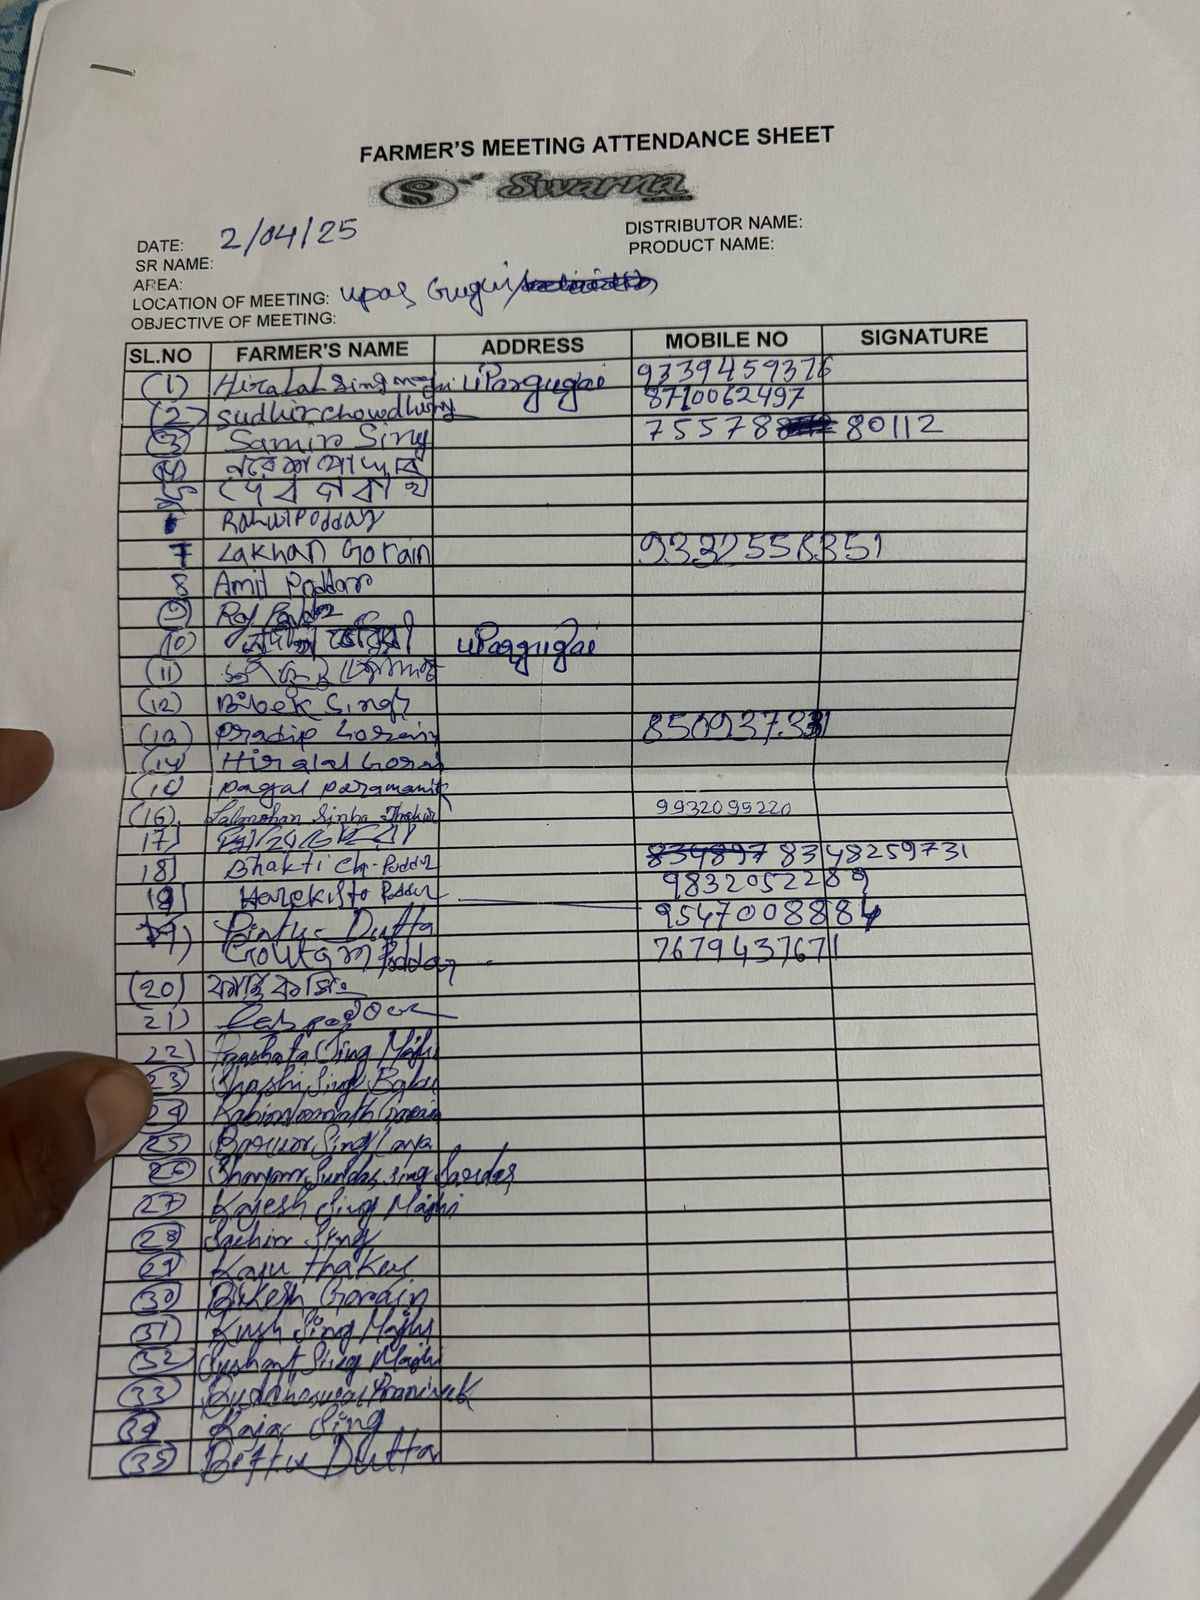 FARMER'S MEETING ATTENDANCE SHEET
S Swarna
DATE: 2/04/25 DISTRIBUTOR NAME:
SR NAME: PRODUCT NAME:
AREA:
LOCATION OF MEETING: upar Gugui
OBJECTIVE OF MEETING:
SL.NO FARMER'S NAME ADDRESS MOBILE NO SIGNATURE
(1) Hiralal Singmajhi uPargugai 9339459376
(2) Sudhir Chowdhury 8710062497
(3) Samir Sing 75578 80112
(4)
5
6 Rahul Poddar
7 Lakhan Gorain 9332558351
8 Amit Poddar
(9) Raj Poddar
(10) uPargugai
(11)
(12) Bibek Singh
(13) Pradip Gorain
(14) Hiralal Gorai
(15) pagal paramanik
(16) Lalmohan Sinha Thakur 9932099220
17)
18) Bhakti Ch. Poddar 8348259731
19) Harekisto Poddar 9832052289
19) Pintu Dutta 9547008884
Goutam Poddar 7679437671
(20)
21)
22) Prashata Sing Majhi
23 Shashi Sing Babu
24 Rabindranath Gorain
(25) Sing Laya
(26) Shyam Sundar Sing Sardar
(27) Rajesh Sing Majhi
(28) Sachin Sing
(29) Raju thakur
(30) Bikesh Gorain
(31) Kush Sing Majhi
(32) Sushant Sing Majhi
(33)
(34) Raja Sing
(35) Bittu Dutta